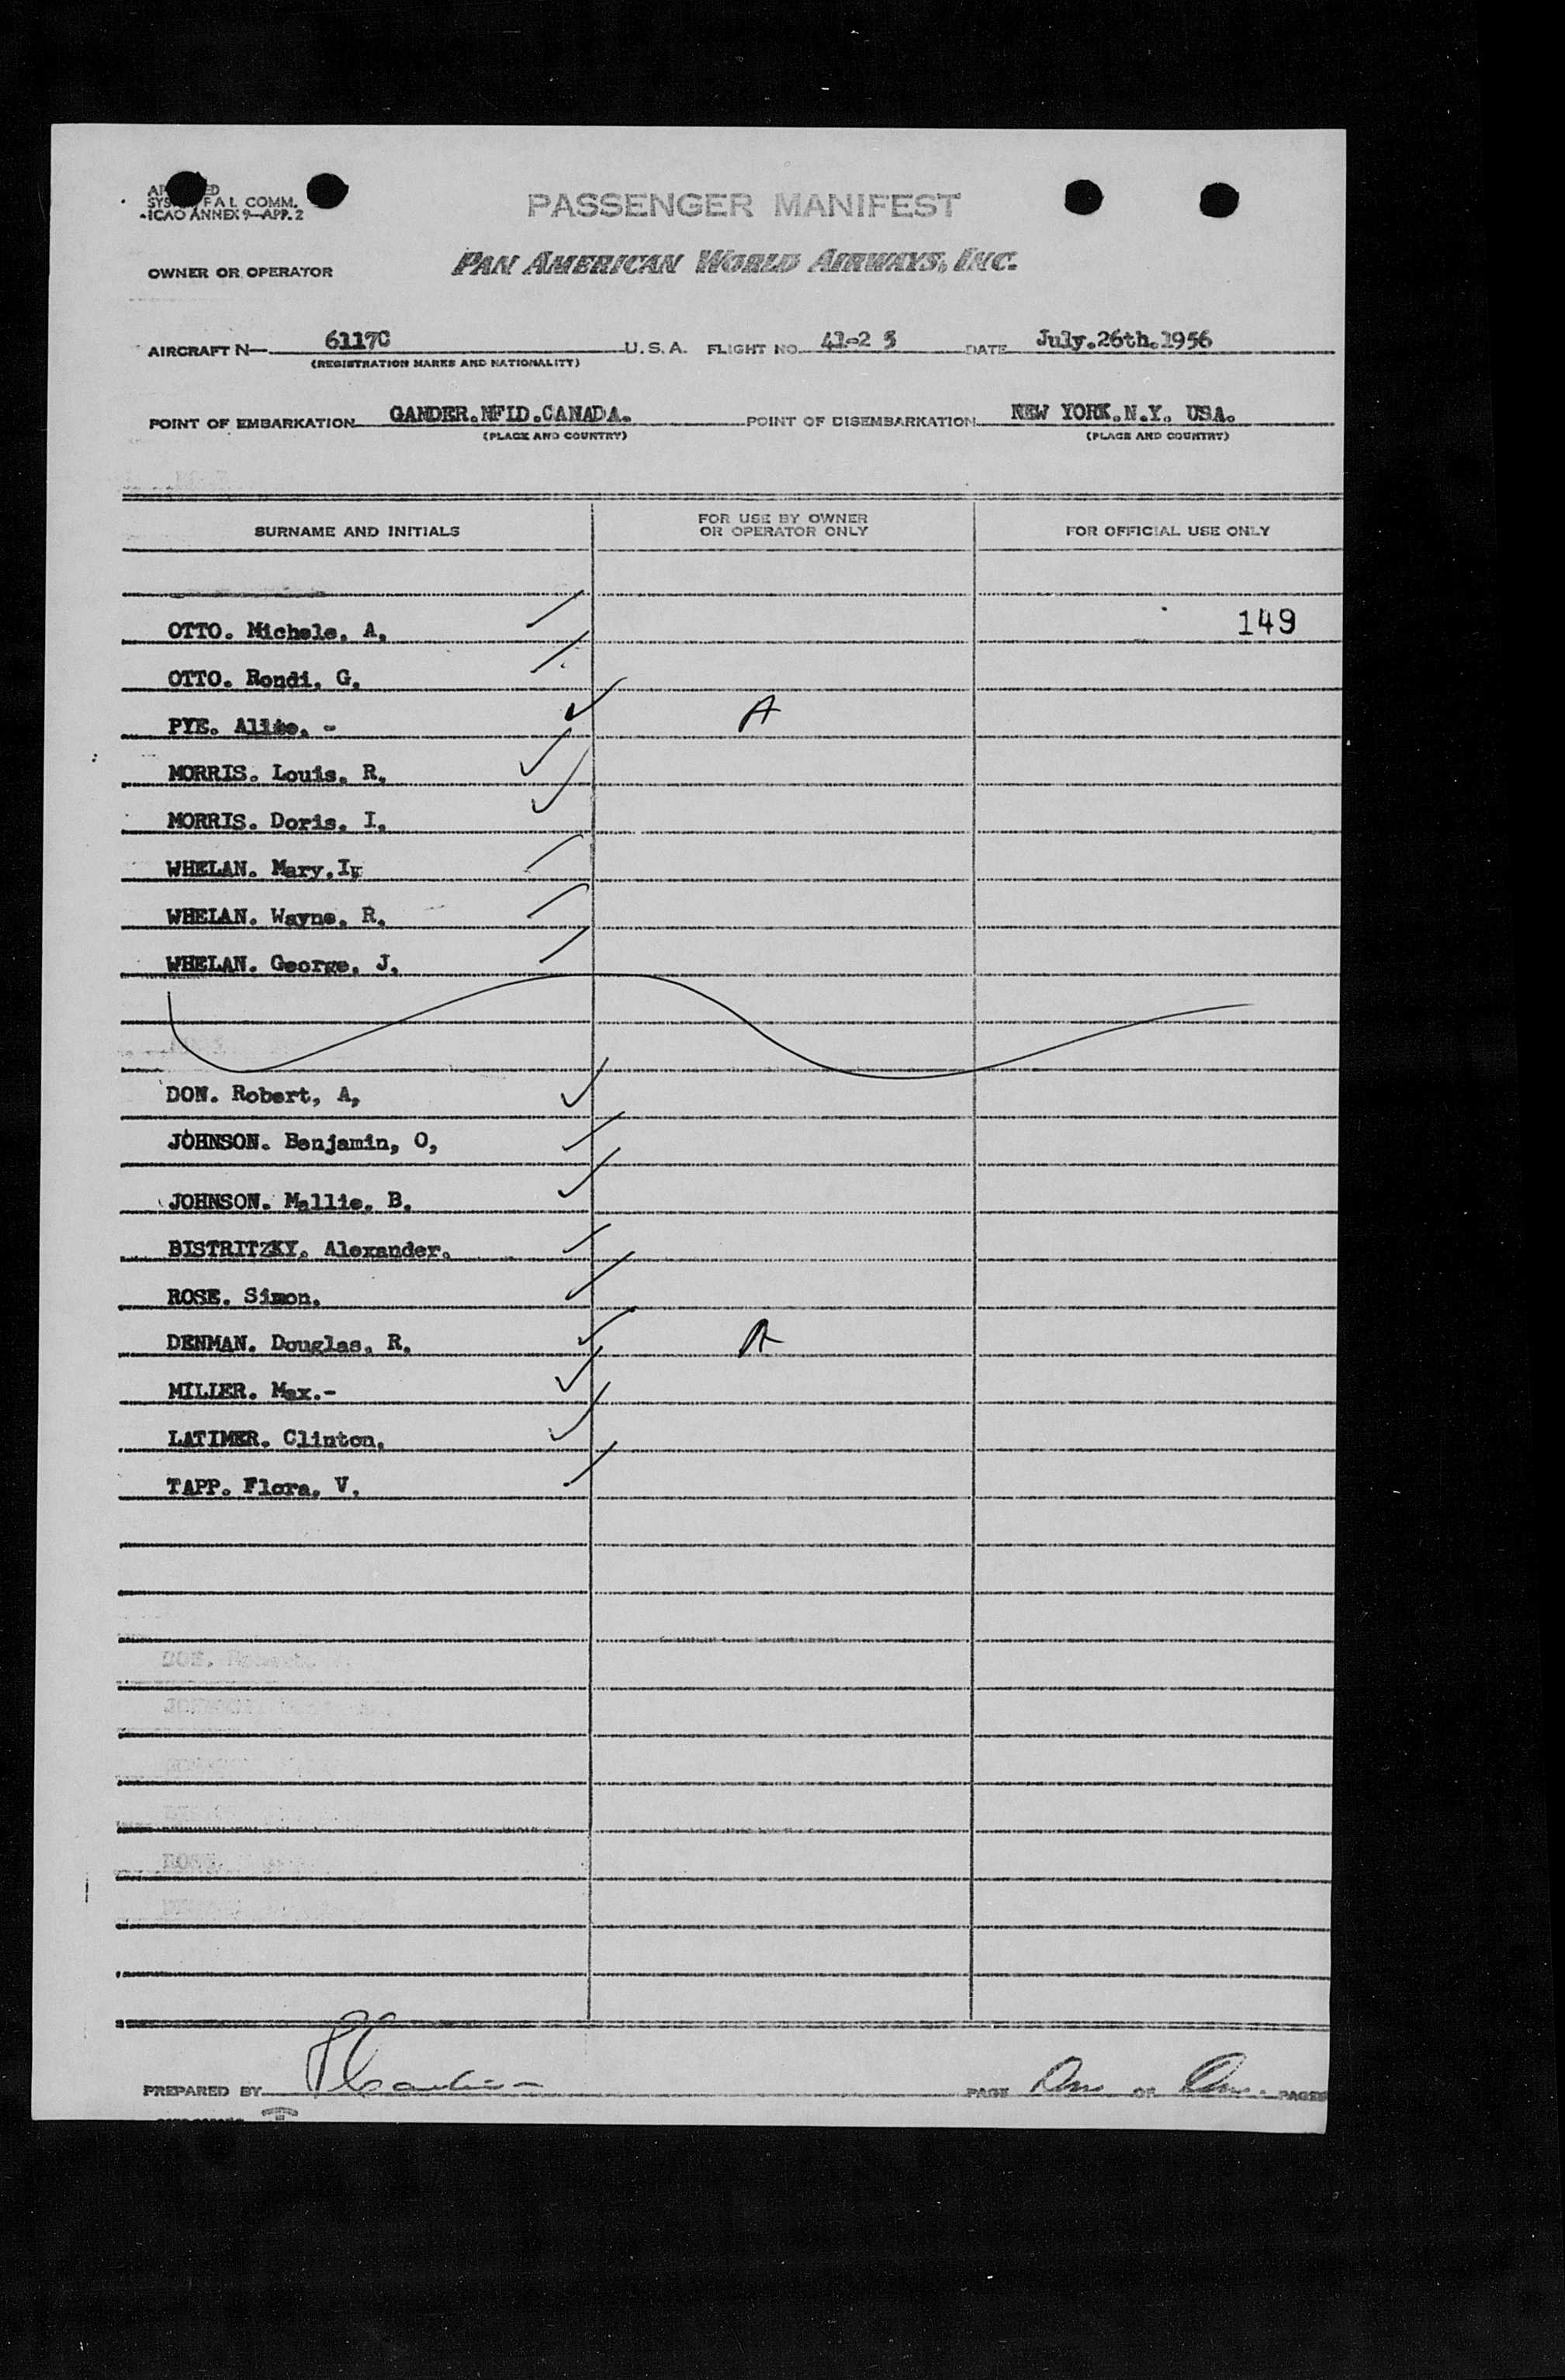 SYS F A L COMM.
ICAO ANNEX 9—APP. 2
PASSENGER MANIFEST
OWNER OR OPERATOR PAN AMERICAN WORLD AIRWAYS, INC.
AIRCRAFT N— 6117C U.S.A. FLIGHT NO. 41-2 5 DATE July.26th.1956
(REGISTRATION MARKS AND NATIONALITY)
POINT OF EMBARKATION GANDER.NFLD.CANADA. POINT OF DISEMBARKATION NEW YORK.N.Y. USA.
(PLACE AND COUNTRY) (PLACE AND COUNTRY)
SURNAME AND INITIALS FOR USE BY OWNER OR OPERATOR ONLY FOR OFFICIAL USE ONLY
OTTO. Michele, A, 149
OTTO. Rondi, G,
PYE. - A
MORRIS. Louis, R,
MORRIS. Doris, I,
WHELAN. Mary.
WHELAN. Wayne, R,
WHELAN. George, J,
DON. Robert, A,
JOHNSON. Benjamin, O,
JOHNSON. Mallie, B.
BISTRITZKY. Alexander.
ROSE. Simon,
DENMAN. Douglas, R, A
MILLER. Max.-
LATIMER. Clinton,
TAPP. Flora, V,
PREPARED BY PAGE One OF One. PAGES